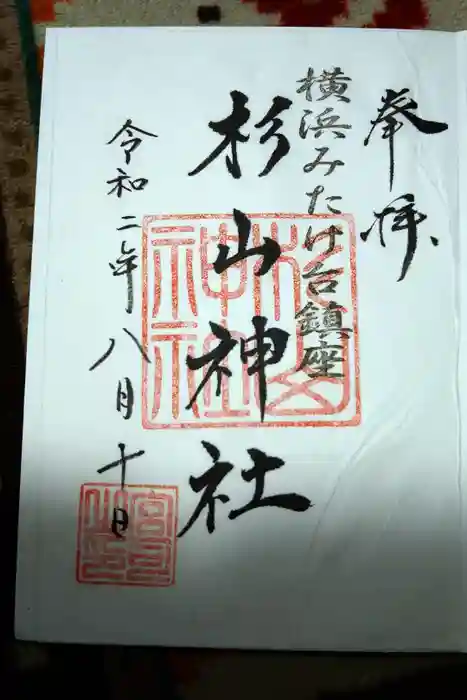 奉拝
横浜みたけ台鎮座
杉山神社
令和二年八月十日
杉山神社